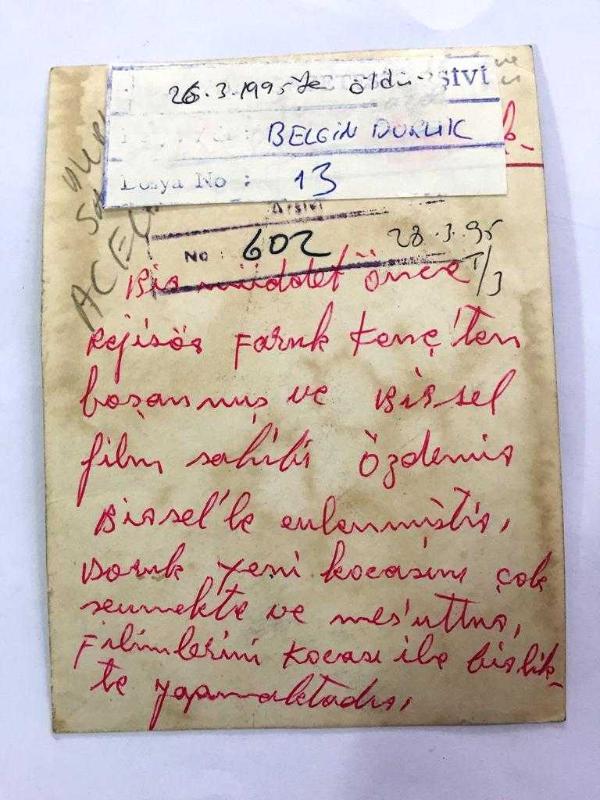 26.3.1995 de öldü
şivi
BELGİN DORUK
Dosya No : 13
Arşivi
No : 602 28.3.95
T/3
Bir müddet önce
Rejisör Faruk Kenç'ten
boşanmış ve Birsel
film sahibi Özdemir
Birsel'le evlenmiştir,
Doruk yeni kocasını çok
sevmekte ve mes'uttur,
Filimlerini kocası ile birlik-
te yapmaktadır,